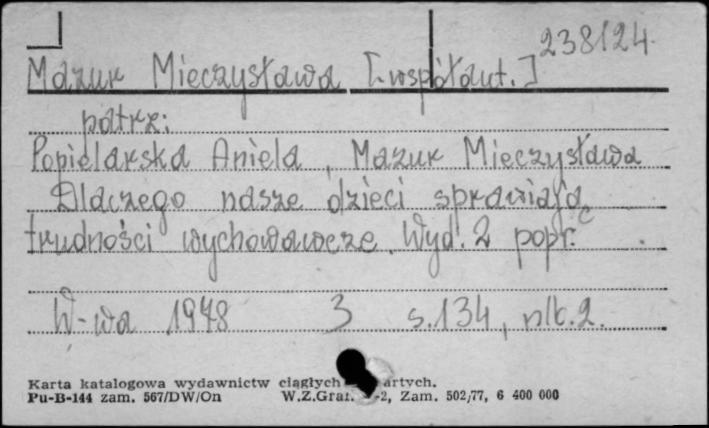 238124
Mazur Mieczysława [współaut.]
patrz:
Popielarska Aniela, Mazur Mieczysława
Dlaczego nasze dzieci sprawiają
trudności wychowawcze. Wyd. 2 popr.
W-wa 1978 3 s. 134, nlb. 2.
Karta katalogowa wydawnictw ciągłych artych.
Pu-B-144 zam. 567/DW/On W.Z.Graf. -2, Zam. 502/77, 6 400 000